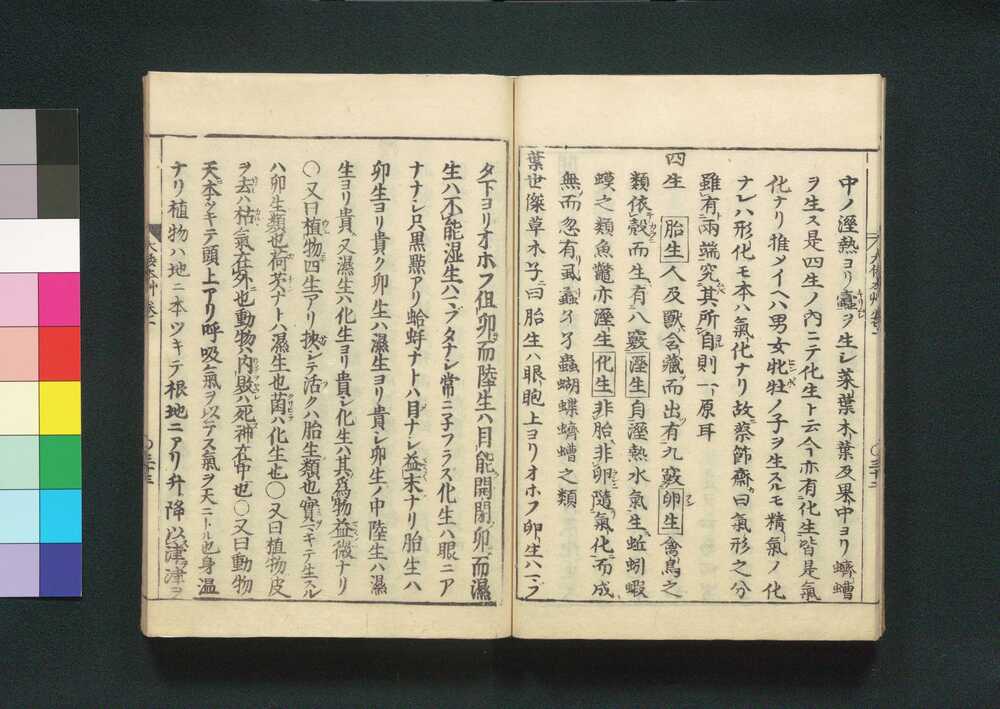 中ノ溼熱ヨリ蠹ヲ生シ菜葉木葉及果中ヨリ蠐螬
ヲ生ス是四生ノ内ニテ化生ト云今亦有化生皆是氣
化ナリ推シイヘハ男女牝牡ノ子ヲ生スルモ精氣ノ化
ナレハ形化モ本ハ氣化ナリ故蔡節齋曰氣形之分
雖有兩端究其所自則一原耳
四生 胎生人及獸含藏而出有九竅卵生禽鳥之
類依殼而生有八竅溼生自溼熱水氣生蚯蚓蝦
蟆之類魚鼈亦溼生化生非胎非卵隨氣化而成
無而忽有虱蟲孑孑蟲蝴蝶蠐螬之類
葉世傑草木子曰胎生ハ眼胞上ヨリオホフ卵生ハマブ
タ下ヨリオホフ但卵而陸生ハ目能開閉卵而濕
生ハ不能湿生ハマブタナシ常ニ子フラス化生ハ眼ニア
ナナシ只黒㸃アリ蛤蚌ナトハ目ナシ益末ナリ胎生ハ
卵生ヨリ貴ク卵生ハ濕生ヨリ貴シ卵生ノ中陸生ハ濕
生ヨリ貴又濕生ハ化生ヨリ貴シ化生ハ其為物益微ナリ
〇又曰植物四生アリ挾シテ活クハ胎生類也實マキテ生スル
ハ卵生類也荷芡ナトハ濕生也菌ハ化生也〇又曰植物皮
ヲ去ハ枯氣在外也動物ハ内敗ハ死神在中也〇又曰動物
天本ツキテ頭上アリ呼吸氣ヲ以テス氣ヲ天ニトル也身温
ナリ植物ハ地ニ本ツキテ根地ニアリ升降以津津ヲ